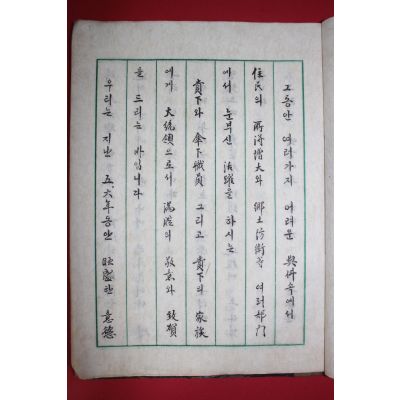 그동안 여러가지 어려운 與件속에서
住民의 所得增大와 鄕土防衛等 여러部門
에서 눈부신 活躍을 하시는
貴下와 傘下職員 그리고 貴下의 家族
에게 大統領으로서 滿腔의 敬意와 致賀
를 드리는 바입니다
우리는 지난 五, 六年동안 旺盛한 意慾